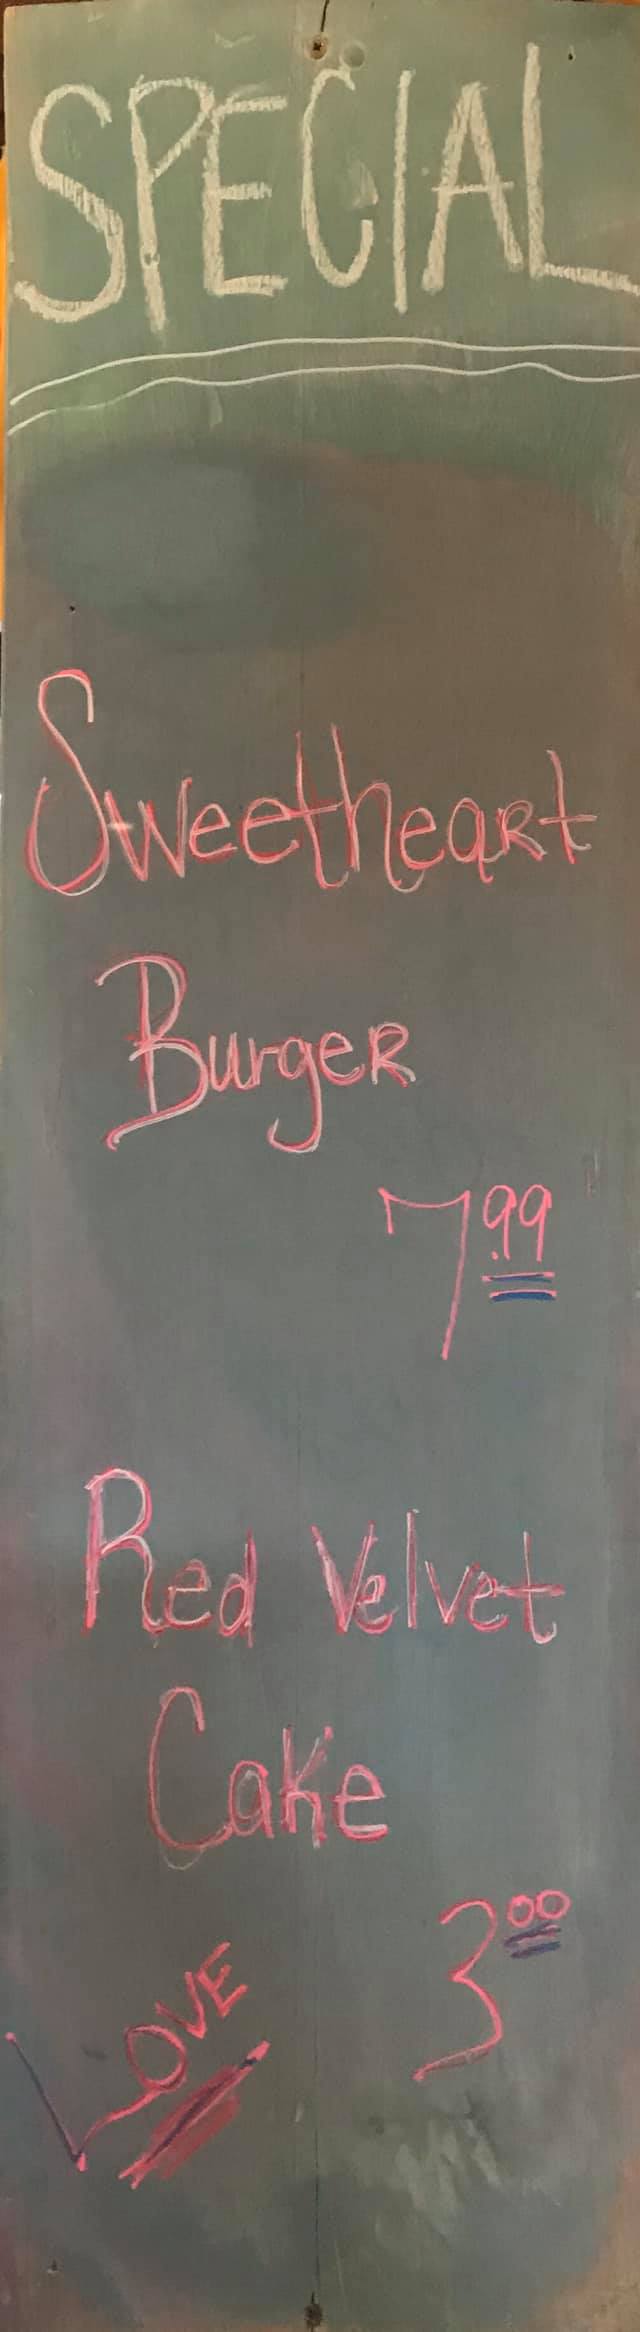 SPECIAL
Sweetheart
Burger
7.99
Red Velvet
Cake
3 00
LOVE